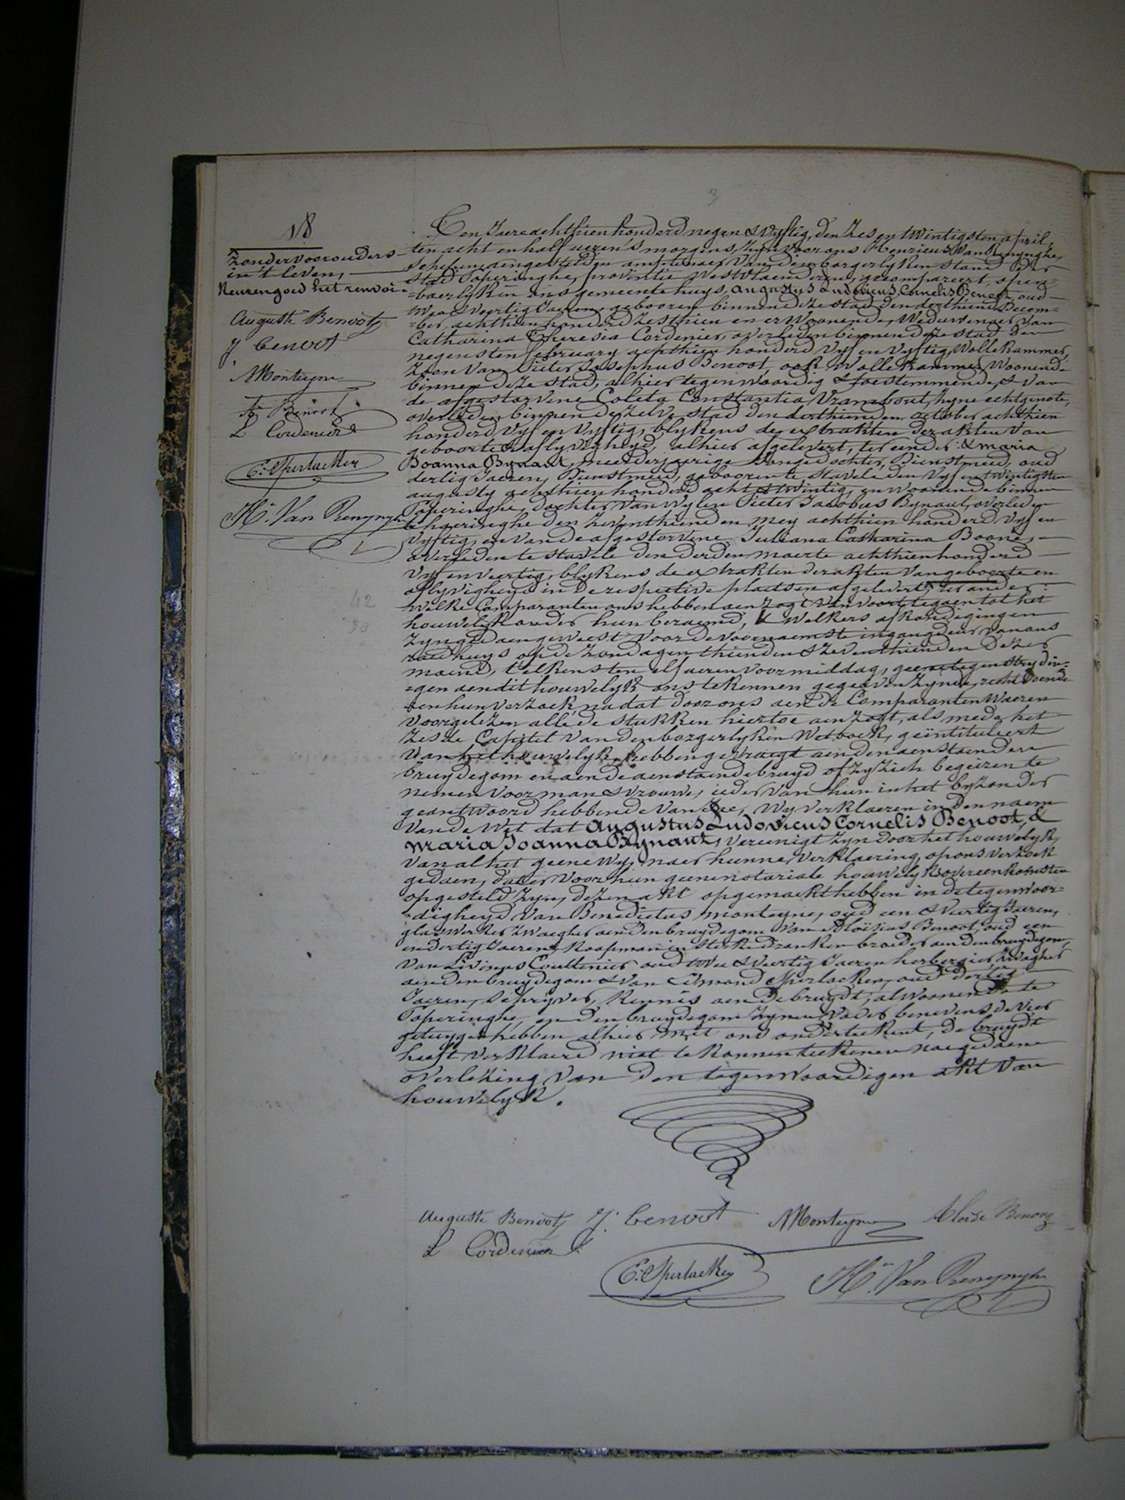 3
18
Zonder voorouders
in 't leven,
Keuren goed het renvoi
Auguste Benoot
J. benoot
Monteyne
A. Benoot
L Cordenier
E. Sperlaeken
H. Van Renynghe
Ten Jaere achthien honderd negen & vyftig, den Zes en twintigsten april,
ten acht en half ueren 's morgens, zyn voor ons Henricus Van Renynghe,
Schepenen amptenaer van den borgerlyken stand der
Stad Poperinghe, provintie Westvlaenderen, gecompareert, open-
baerlyk in ons gemeentehuys, Augustus Ludovicus Cornelis Benoot, oud
twee & veertig Jaeren, gebooren binnen deze stad den derthienden Decem-
ber achthien honderd Zesthien en er Woonende, Weduwenaer van
Catharina Theresia Cordenier, overleden binnen deze stad den
negensten february achthien honderd vyf en vyftig, Wollekammer,
Zoon van Pieter Josephus Benoot, ook Wollekammer, Woonende
binnen deze stad, alhier tegenwoordig & toestemmende, & van
de afgestorvene Coleta Constantia Vrambout, zyne echtgenote,
overleden binnen dezelve stad den derthienden october achthien
honderd vyf en vyftig, blykens de extrakten der akten van
geboorte & aflyvigheyd alhier afgelevert, ter eender & maria
Joanna Bynaut, meerderjarige Jongedochter, Dienstmeid, oud
dertig Jaeren, gebooren te Stavele den vyf en twintigsten
augusty achthien honderd acht & twintig, en woonende binnen
Poperinghe, dochter van wylen Pieter Jacobus Bynaut, overleden
te Poperinghe den mey achthien honderd vyf en
vyftig, en van de afgestorvene Juliana Catharina Boone,
overleden te Stavele den derden maerte achthien honderd
vyf en veertig, blykens de extrakten der akten van geboorte en
aflyvigheyd in de respective plaetsen afgelevert, ter ander;
Welke Comparanten ons hebben aenzogt van voort te gaen tot het
houwelyk onder hun beraemd, & Welkers afkondigingen
zyn gedaen geweest voor de voornaemste ingangdeur van ons
raedhuys op de zondagen thienden & zeventhienden dezer
maend, telkens ten elf ueren voormiddag, geene tegenstrydin-
gen aen dit houwelyk ons te kennen gegeven zynde, recht doende
aen hun verzoek, na dat door ons aen de Comparanten Waeren
voorgelezen alle de stukken hiertoe aenzogt, als mede het
zesde Capittel van den borgerlyken Wetboek, geintituleert
van het houwelyk, hebben gevraegt aen den aenstaenden
bruydegom en aen de aenstaende bruyd of zy zich begeeren te
nemen voor man & vrouwe, ieder van hun in het byzonder
geantwoord hebbende van Jae, Wy verklaeren in den naem
van de Wet dat Augustus Ludovicus Cornelis Benoot, &
Maria Joanna Bynaut, vereenigt zyn door het houwelyk,
van al het geene Wy, naer hunne verklaering, op ons verzoek
gedaen, dat er voor hun geene notariale houwelyksovereenkomsten
opgesteld zyn, dezen akt opgemaekt hebben in de tegenwoor-
digheyd van Benedictus Monteyne, oud een & veertig Jaeren,
glaswerker, zwaeger aen den bruydegom, van Aloïsius Benoot, oud een
en dertig Jaeren, Koopman in sterke dranken, broeder aen den bruydegom,
van Livinus Cordenier, oud twee & veertig Jaeren, herbergier, zwaeger
aen den bruydegom & van Edmond Sperlaeken, oud dertig
Jaeren, Schryver, kennis aen de bruydt, al Woonende te
Poperinghe, en den bruydegom zynen vader benevens de vier
getuygen hebben alhier met ons onderteekent, de bruydt
heeft verklaerd niet te konnen teekenen naer gedaene
overlezing van den tegenwoordigen akt van
houwelyk.
Auguste Benoot J. benoot Monteyne Aloïse Benoot
L Cordenier
E. Sperlaeken H. Van Renynghe